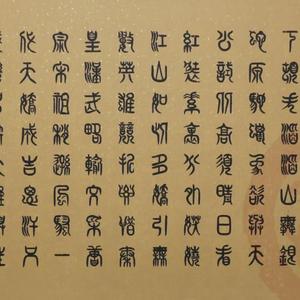 下頓失滔滔山舞銀
蛇原馳蠟象欲與天
公試比高須晴日看
紅裝素裹分外妖嬈
江山如此多嬌引無
數英雄競折腰惜秦
皇漢武略輸文采唐
宗宋祖稍遜風騷一
代天驕成吉思汗只